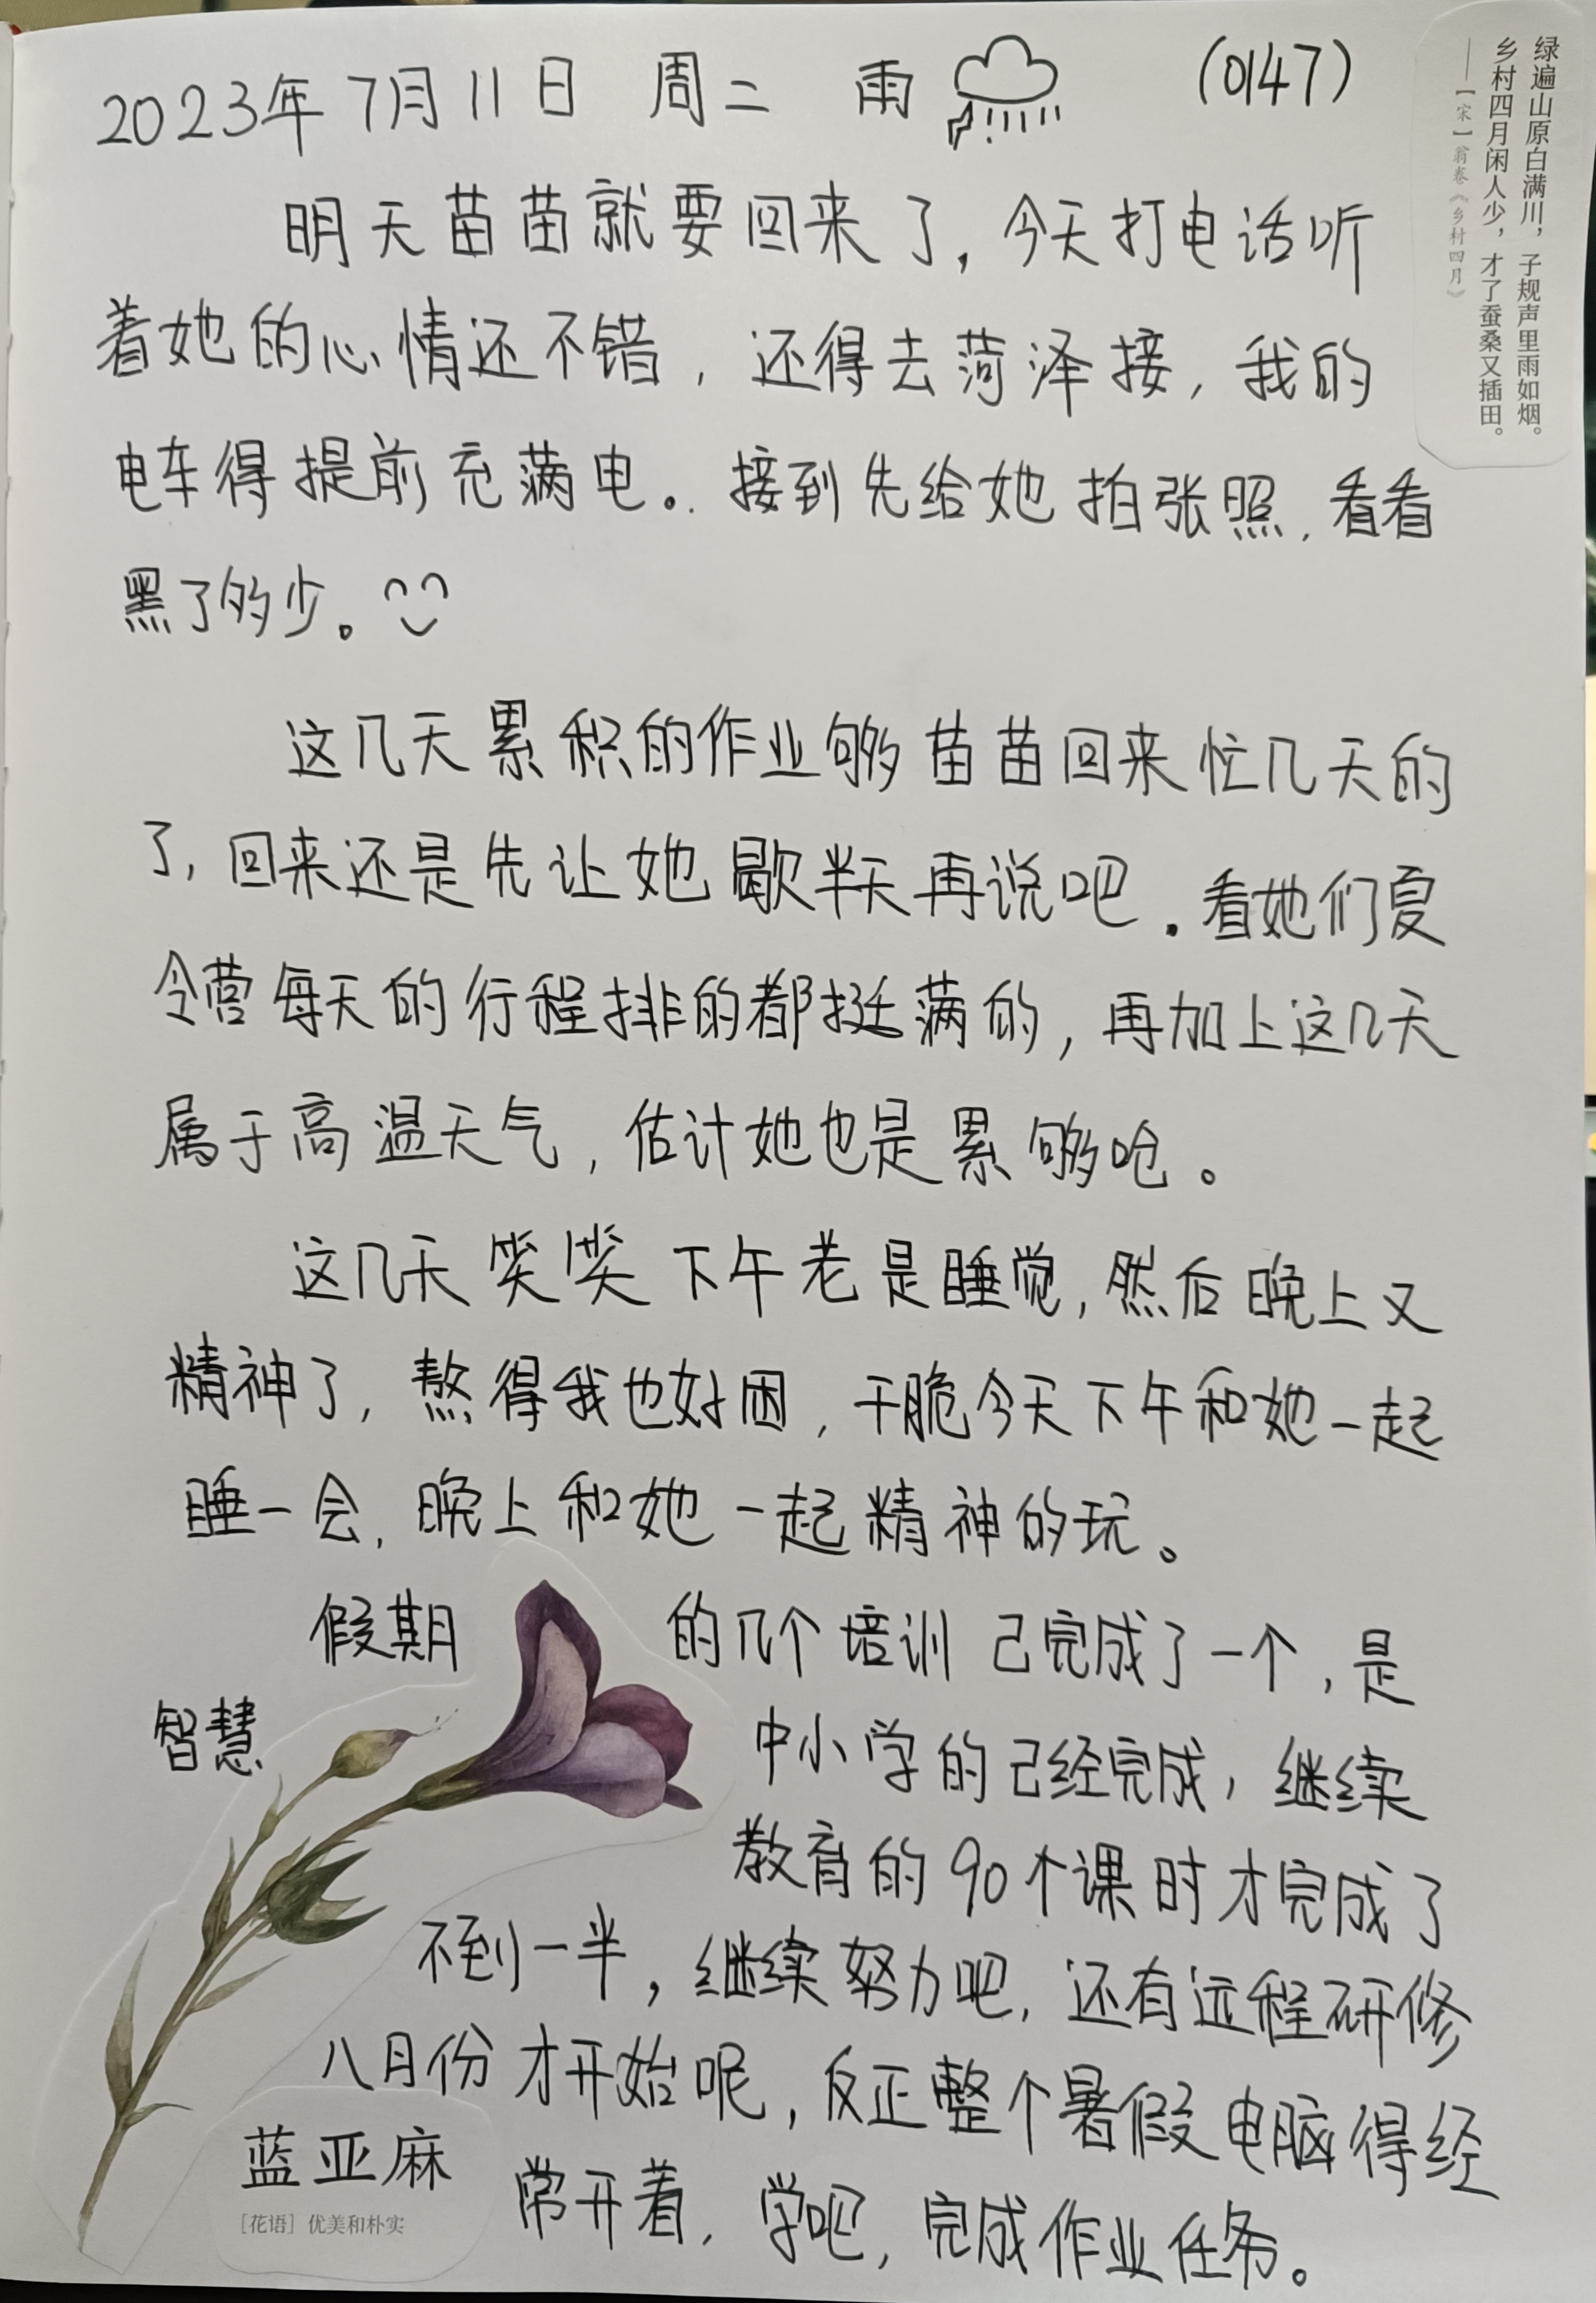 2023年7月11日 周二 雨 (0147)
绿遍山原白满川，子规声里雨如烟。
乡村四月闲人少，才了蚕桑又插田。
——【宋】翁卷《乡村四月》
明天苗苗就要回来了，今天打电话听
着她的心情还不错，还得去菏泽接，我的
电车得提前充满电。接到先给她拍张照，看看
黑了多少。
这几天累积的作业够苗苗回来忙几天的
了，回来还是先让她歇半天再说吧。看她们夏
令营每天的行程排的都挺满的，再加上这几天
属于高温天气，估计她也是累够呛。
这几天笑笑下午老是睡觉，然后晚上又
精神了，熬得我也好困，干脆今天下午和她一起
睡一会，晚上和她一起精神的玩。
假期的几个培训已完成了一个，是
智慧中小学的已经完成，继续
教育的90个课时才完成了
不到一半，继续努力吧，还有远程研修
八月份才开始呢，反正整个暑假电脑得经
常开着，学吧，完成作业任务。
蓝亚麻
［花语］优美和朴实